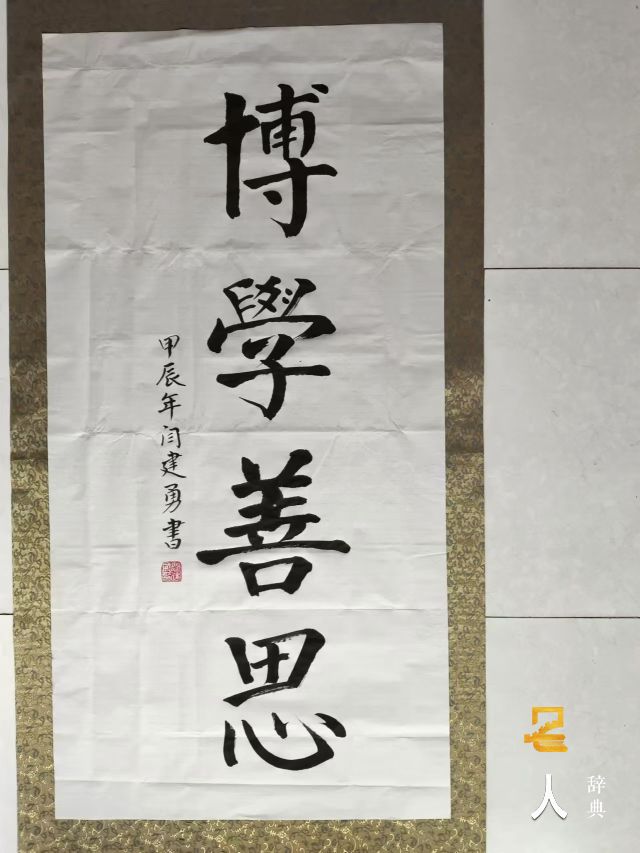 博學善思
甲辰年闫建勇書
人
辞典